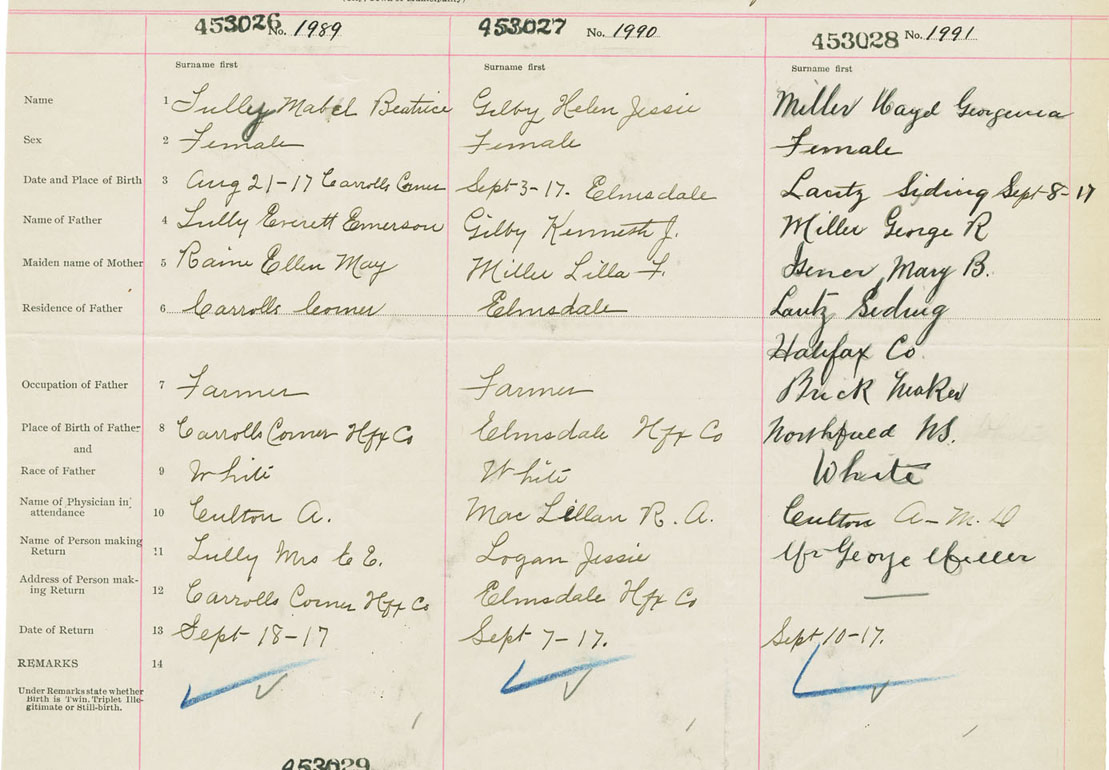 453026 No. 1989 453027 No. 1990 453028 No. 1991
Surname first Surname first Surname first
Name 1 Tully Mabel Beatrice Gilby Helen Jessie Miller Georgenia
Sex 2 Female Female Female
Date and Place of Birth 3 Aug 21-17 Carrolls Corner Sept 3-17. Elmsdale Lantz Siding Sept 8-17
Name of Father 4 Tully Everett Emerson Gilby Kenneth J. Miller George R
Maiden name of Mother 5 Raine Ellen May Miller Lilla F. Mary B.
Residence of Father 6 Carrolls Corner Elmsdale Lantz Siding
Halifax Co
Occupation of Father 7 Farmer Farmer Brick Maker
Place of Birth of Father 8 Carrolls Corner Hfx Co Elmsdale Hfx Co Northfield NS.
and
Race of Father 9 White White White
Name of Physician in attendance 10 Culton A. Mac Lellan R. A. Culton A-M.D
Name of Person making Return 11 Tully Mrs E E. Logan Jessie Mr George Miller
Address of Person making Return 12 Carrolls Corner Hfx Co Elmsdale Hfx Co
Date of Return 13 Sept 18-17 Sept 7-17. Sept 10-17.
REMARKS 14
Under Remarks state whether
Birth is Twin, Triplet Ille-
gitimate or Still-birth.
453029